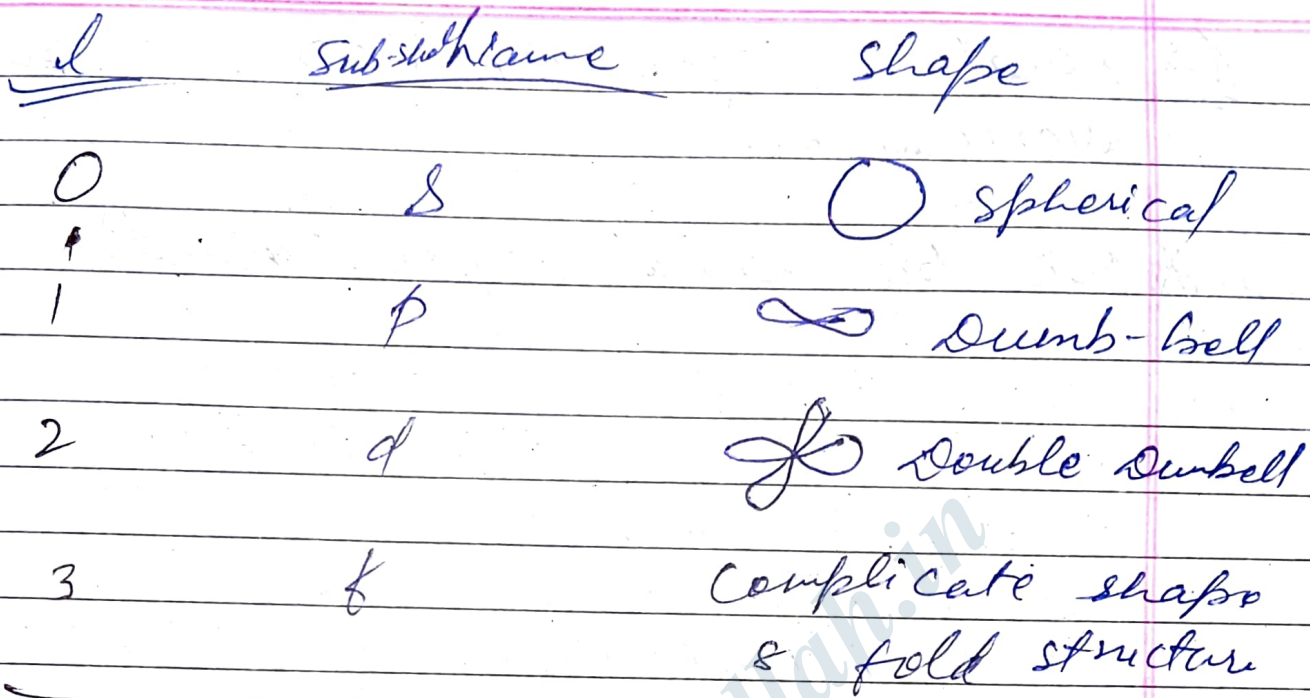 l Sub-shell name shape
0 s spherical
1 p Dumb-bell
2 d Double Dumbell
3 f Complicate shape
8 fold structure
llah.in